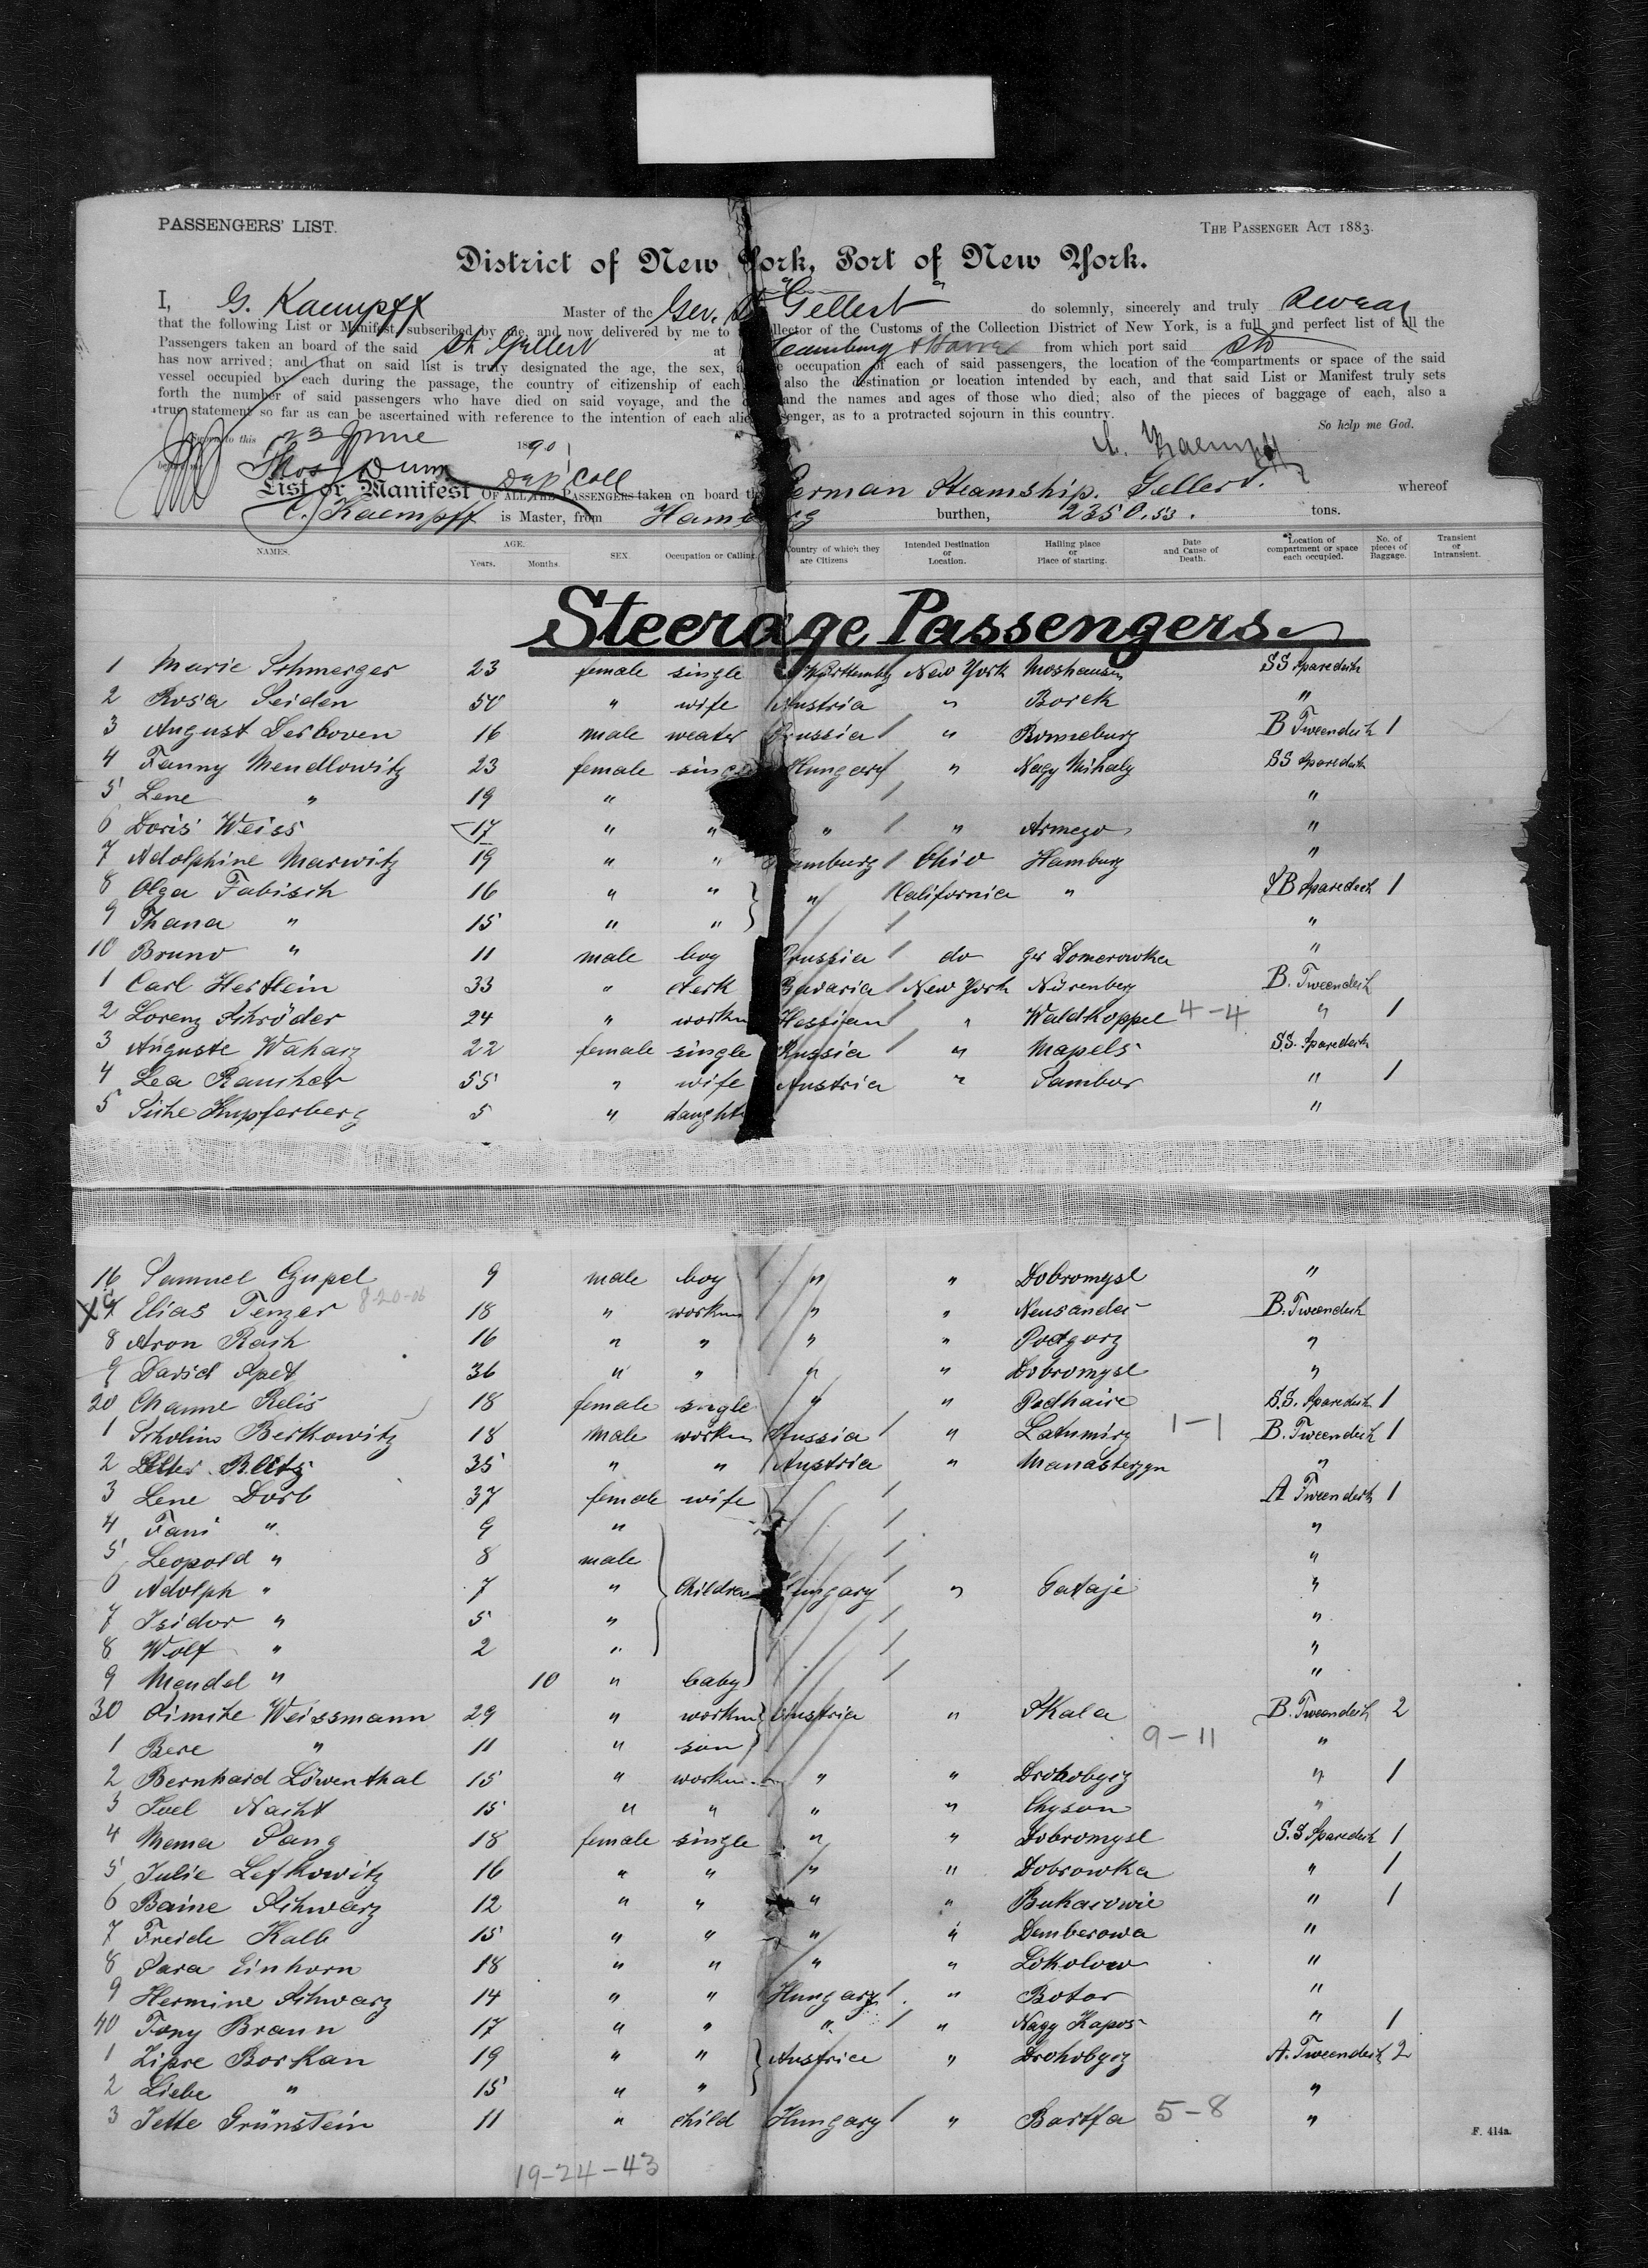 PASSENGERS' LIST. THE PASSENGER ACT 1883.
District of New York, Port of New York.
I, G. Kaempff Master of the Ger. Gellert do solemnly, sincerely and truly swear
that the following List or Manifest, subscribed by me, and now delivered by me to Collector of the Customs of the Collection District of New York, is a full and perfect list of all the
Passengers taken an board of the said St. Gellert at Hamburg & Havre from which port said
has now arrived; and that on said list is truly designated the age, the sex, occupation of each of said passengers, the location of the compartments or space of the said
vessel occupied by each during the passage, the country of citizenship of each also the destination or location intended by each, and that said List or Manifest truly sets
forth the number of said passengers who have died on said voyage, and the and the names and ages of those who died; also of the pieces of baggage of each, also a
true statement so far as can be ascertained with reference to the intention of each alien passenger, as to a protracted sojourn in this country.
So help me God.
to this 23 June 1890
G. Kaempff
Thos. Dunn Dep Coll
List or Manifest OF ALL THE PASSENGERS taken on board the German Steamship. Gellert. whereof
C. Kaempff is Master, from Hamburg burthen, 2350.53. tons.
NAMES. AGE. Years. Months. SEX. Occupation or Calling. Country of which they are Citizens Intended Destination or Location. Hailing place or Place of starting. Date and Cause of Death. Location of compartment or space each occupied. No. of pieces of Baggage. Transient or Intransient.
Steerage Passengers
1 Marie Schmerger 23 female single Württembg New York Moshausen SS Sparedeck
2 Rosa Seiden 50 " wife Austria " Borek "
3 August Lerboven 16 male weater Prussia " Ronneburg B Tweendeck 1
4 Fanny Mendlowitz 23 female single Hungary " Nagy Mihaly SS Sparedeck
5 Lene " 19 " "
6 Doris Weiss 17 " " " " Armezo "
7 Adolphine Marwitz 19 " " Hamburg Ohio Hamburg "
8 Olga Fabisch 16 " " " California " SB Sparedeck 1
9 Thana " 15 " " "
10 Bruno " 11 male boy Prussia do Ger Domerowka "
1 Carl Hertlein 33 " clerk Bavaria New York Nürenberg B. Tweendeck
2 Lorenz Schröder 24 " workm Hessian " Waldkoppel 4-4 " 1
3 Auguste Waharz 22 female single Russia " Mapels S.S. Sparedeck
4 Lea Rauscher 55 " wife Austria " Sambor " 1
5 Siche Kupferberg 5 " daught "
16 Samuel Gupel 9 male boy " " Dobromysl "
17 Elias Tenzer 8-20-06 18 " workm " " Neusandec B. Tweendeck
8 Aron Rash 16 " " " " Podgorz "
9 David Apet 36 " " " " Dobromysl "
20 Channe Relis 18 female single " " Podhaice S.S. Sparedeck 1
1 Scholim Berkowitz 18 male workm Russia " Latumirz 1-1 B. Tweendeck 1
2 Reitz 35 " " Austria " Manasterzyn "
3 Lene Dorb 37 female wife A Tweendeck 1
4 Fani " 9 " "
5 Leopold " 8 male "
6 Adolph " 7 " Children Hungary " Gataje "
7 Isidor " 5 " "
8 Wolf " 2 " "
9 Mendel " 10 " baby "
30 Simche Weissmann 29 " workm Austria " Skala B. Tweendeck 2
1 Bere " 11 " son 9-11 "
2 Bernhard Löwenthal 15 " workm " " Drohobycz " 1
3 Juel Nacht 15 " " " " Chyson "
4 Mema Sang 18 female single " " Dobromysl S.S Sparedeck 1
5 Julie Lefkowitz 16 " " " " Dobrowka " 1
6 Baine Schwarz 12 " " " " Bukacowie " 1
7 Freide Kalb 15 " " " " Demberowa "
8 Sara Einhorn 18 " " " " Sokolow "
9 Hermine Schwarz 14 " " Hungary " Botar "
40 Tony Braun 17 " " " " Nagy Kapos " 1
1 Zipre Borkan 19 " " Austria " Drohobycz A. Tweendeck 2
2 Liebe " 15 " " "
3 Jette Grünstein 11 " child Hungary " Bartfa 5-8 "
F. 414a.
19-24-43